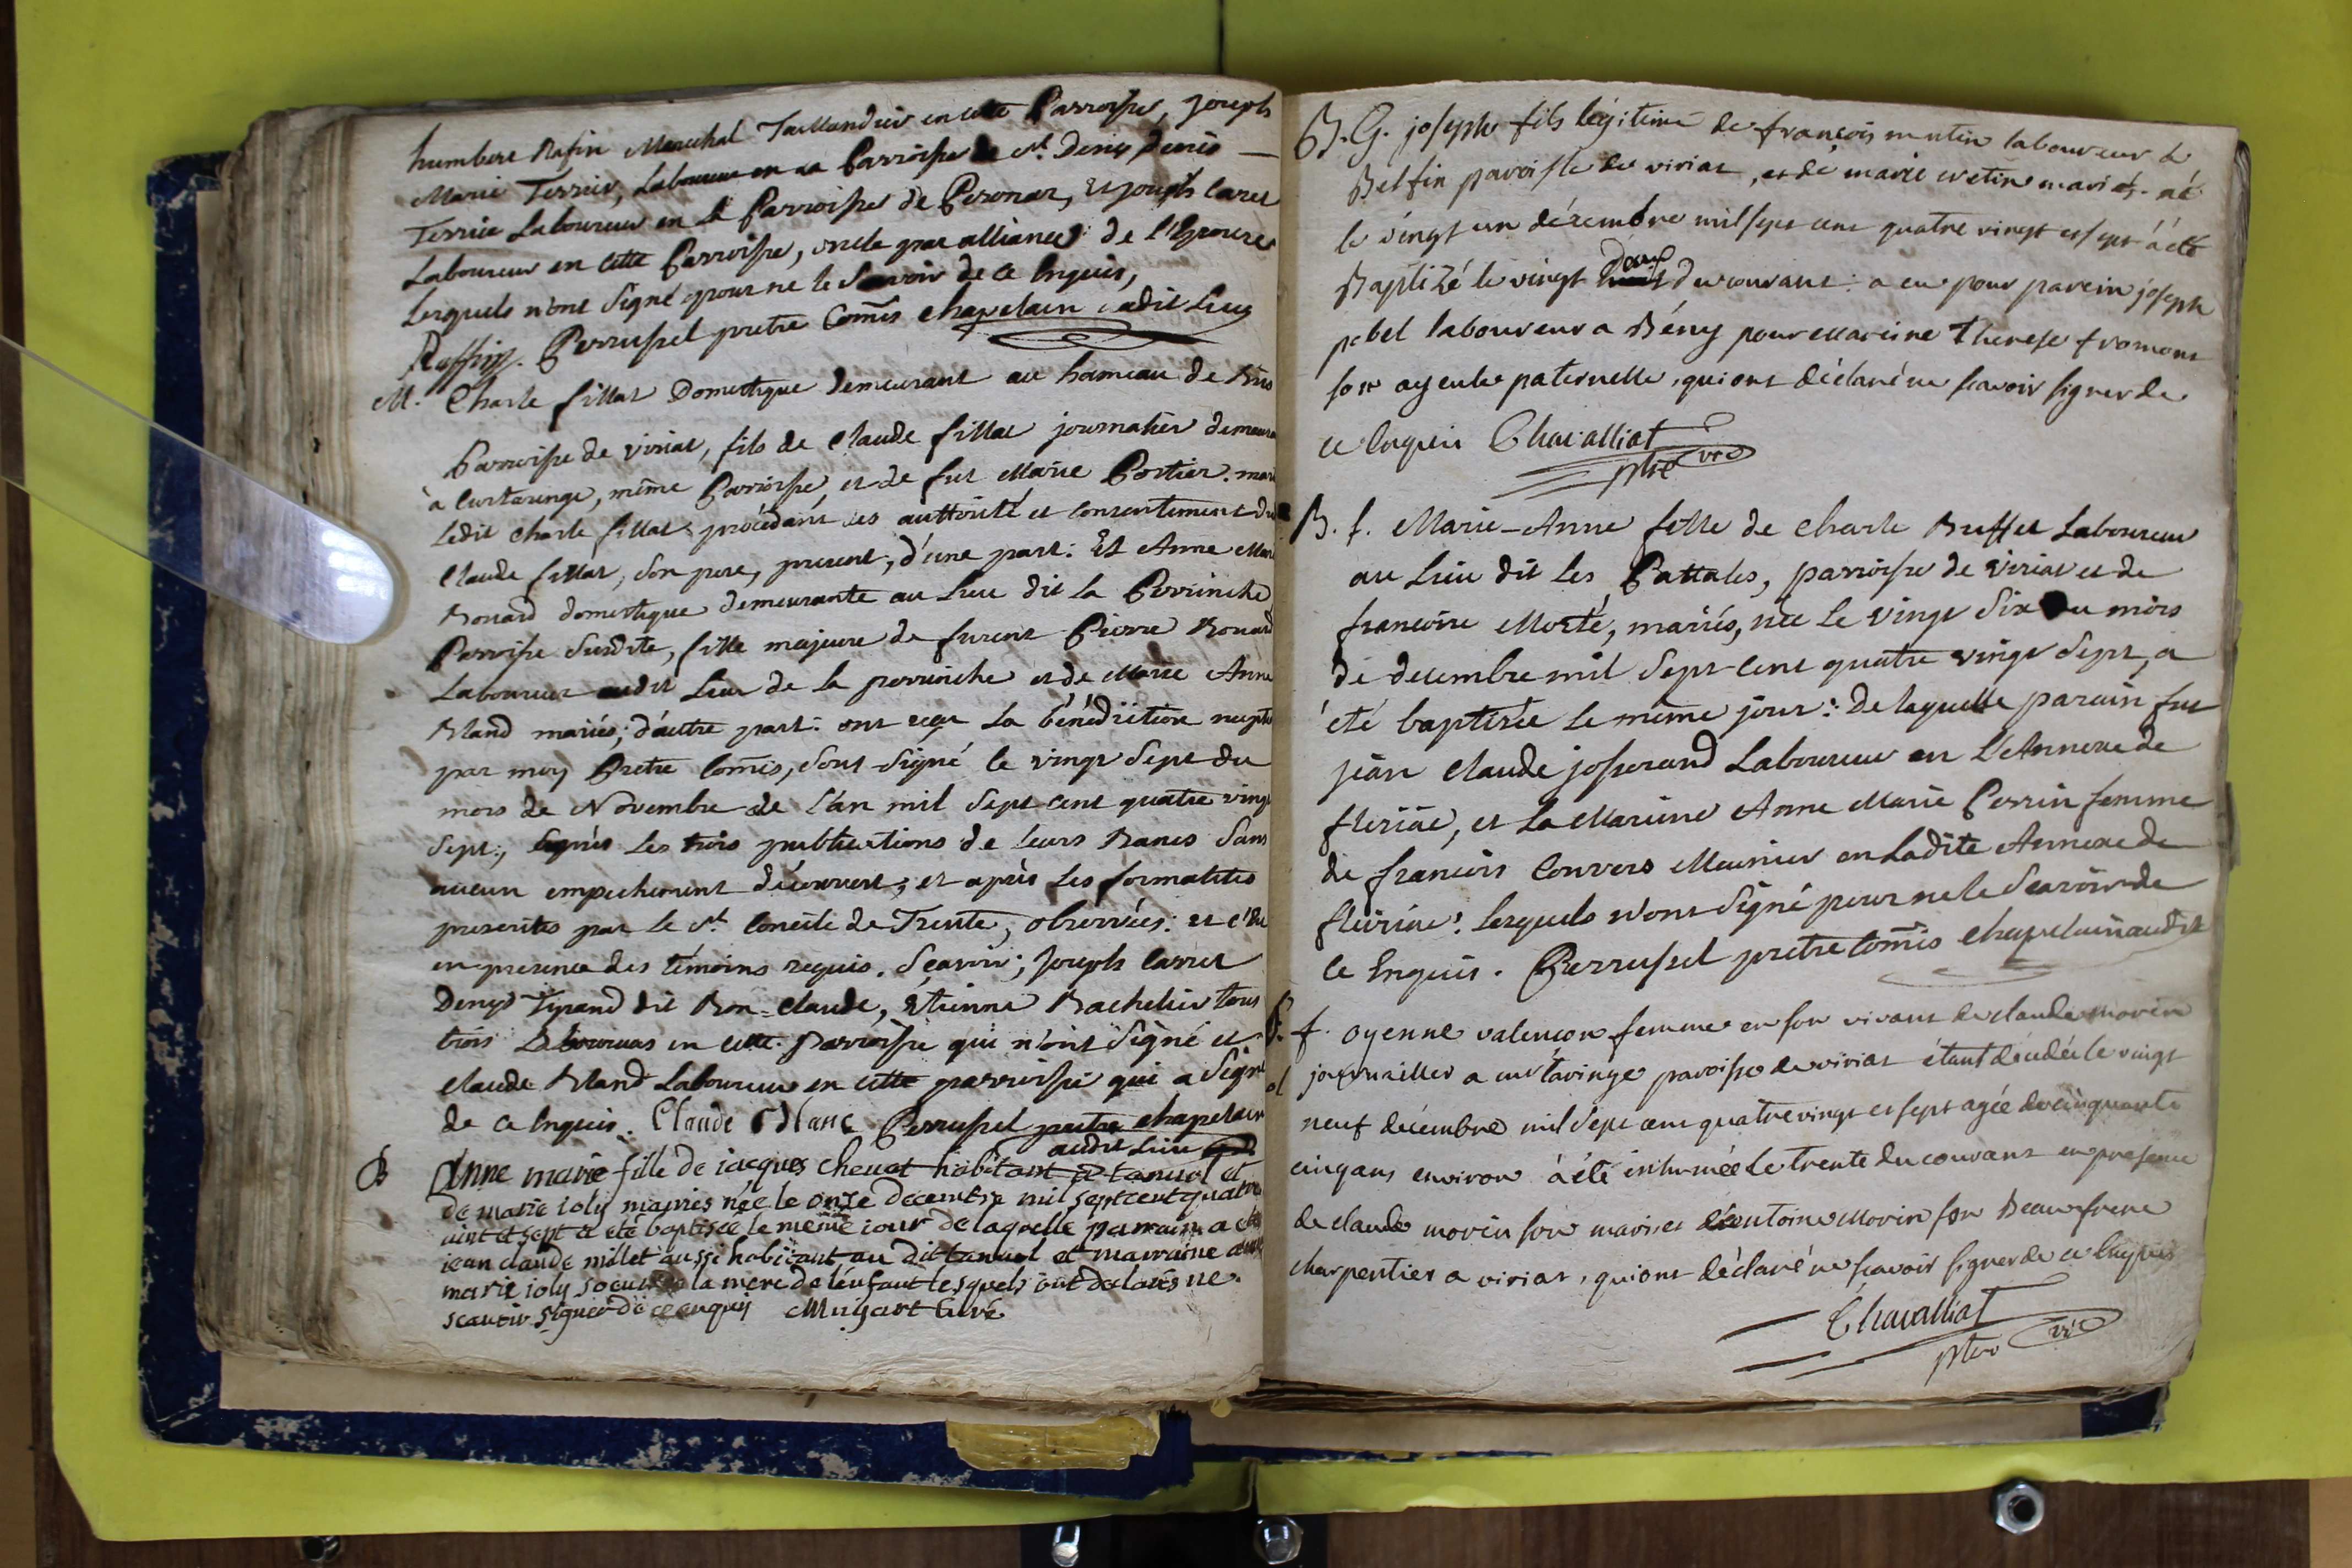 humbert Rafin Marechal Taillandier en cette Parroisse, Joseph
Marie Terrier, Laboureur en la Parroisse de st. Denis, Denis
Terrier Laboureur en la Parroisse de Peronas, et joseph Carret
Laboureur en cette Parroisse, oncle par alliance de l'Epouse
lesquels n'ont signé pour ne le savoir de ce Enquis,
Raffin. Perrussel pretre Comis chapelain audit lieu
M. Charle fillat Domestique demeurant au hameau de
Parroisse de viriat, fils de Claude fillat journalier demeura
à Curtaringe, même Parroisse, et de fut Marie Portier. mar
ledit Charle fillat procédant des authorité et consentement du
Claude fillat, son pere, present, d'une part: Et Anne Mari
Rouard domestique demeurante au lieu dit la Perrinche
Parroisse susdite, fille majeure de furent Pierre Rouard
Laboureur audit lieu de la perrinche et de Marie Anne
Bland mariés; d'autre part: ont reçu la bénédiction nuptia
par moy Pretre Comis, sous-signé le vingt sept du
mois de Novembre de l'an mil sept cent quatre ving
sept, après les trois publications de leurs Bancs sans
aucun empechement découvert; et après les formalités
prescrites par le st. Concile de Trente, observées: et c'été
en presence des témoins requis. Sçavoir; Joseph Carret
Denys Tyrand dit Bon-claude, Etienne Bachelier tous
trois Laboureurs en cette parroisse qui n'ont signé et
Claude Bland Laboureur en cette parroisse qui a signé
de ce Enquis. Claude Blanc Perrussel pretre chapelain
audit lieu
B Anne marie fille de jacques chevat habitant a tanvol et
de marie ioly mariés née le onze decembre mil sept cent quatre
vint et sept a eté baptisée le meme iour de laquelle parrain a eté
iean claude millet aussi habitant au dit tanvol et marraine anne
marie ioly soeur de la mere de l'enfant lesquels ont declarés ne
scavoir signer de ce enquis Curé
B. G. joseph fils légitime de françois mutin laboureur à
Belfin paroisse de viriat, et de marie cretin mariés. né
le vingt un décembre mil sept cent quatre vingt et sept à été
deux
Baptizé le vingt huit du courant: a eu pour parein joseph
pobel laboureur a Bény pour Mareine therese fromont
son ayeule paternelle, qui ont déclaré ne scavoir signer de
ce Enquis Chavalliat
ptre vic
B. f. Marie-Anne fille de Charle Buffet Laboureur
au Lieu dit les Pattales, parroisse de viriat et de
francoise Morté, mariés, née le vingt six du mois
de decembre mil sept-cent quatre vingt sept, a
été baptisée le même jour: De laquelle parain fut
jean Claude josserand Laboureur en l'Annexe de
fleriat, et la Mareine Anne Marie Perrin femme
de francois Convers Meunier en ladite Annexe de
fleuriac: lesquels n'ont signé pour ne le sçavoir de
ce Enquis. Perrussel pretre Comis chapelain audit
f. oyenne valençon femme en son vivant de claude morin
journallier a curtaringe paroisse de viriat étant décedée le vingt
neuf décembre mil sept cent quatre vingt et sept agée de cinquante
cinq ans environ à été inhumée le trente du courant en presence
de claude morin son mari et d'antoine Morin son Beaufrere
charpentier a viriat, qui ont déclaré ne scavoir signer de ce Enquis
Chavalliat
ptre vic